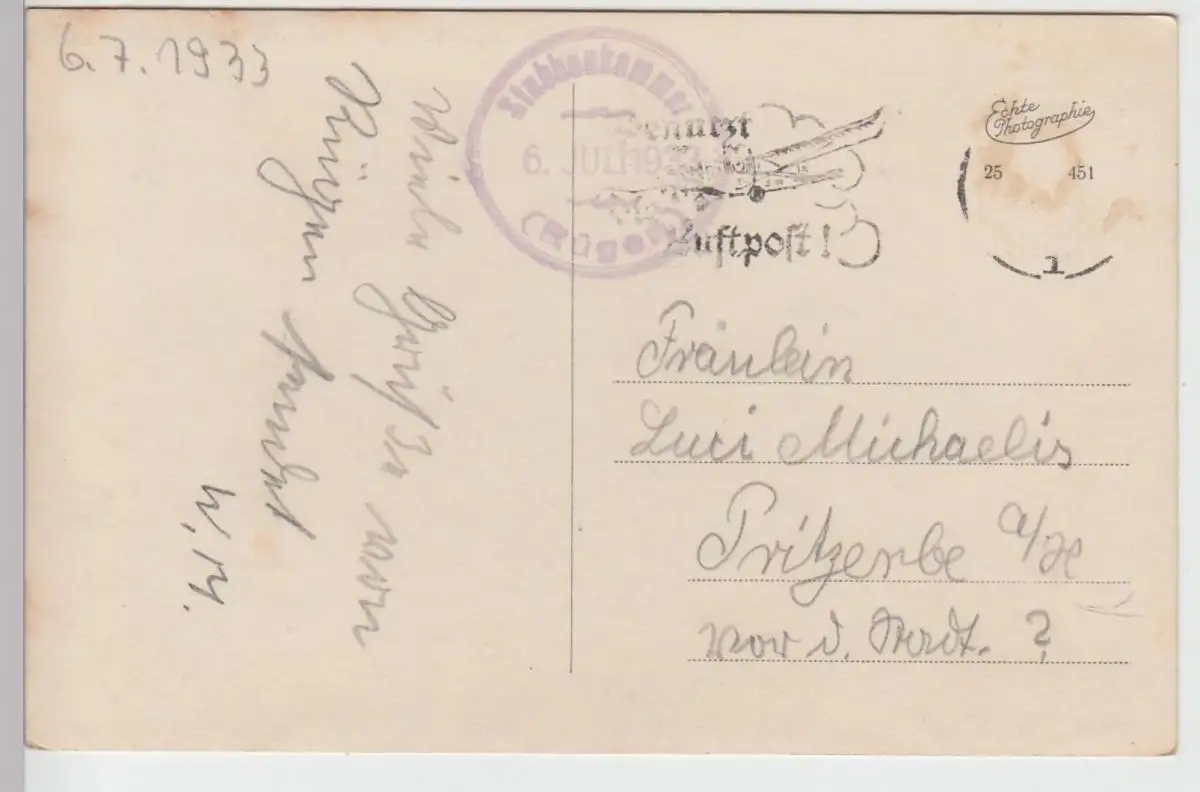 6.7.1933
Viele Grüße von
Rügen sendet
W. M.
Stubbenkammer
6. JULI 1933
(Rügen)
Benutzt
Luftpost!
Echte
Photographie
25 451
1
Fräulein
Luci Michaelis
Pritzerbe a/H
vor d. Stadt. 2